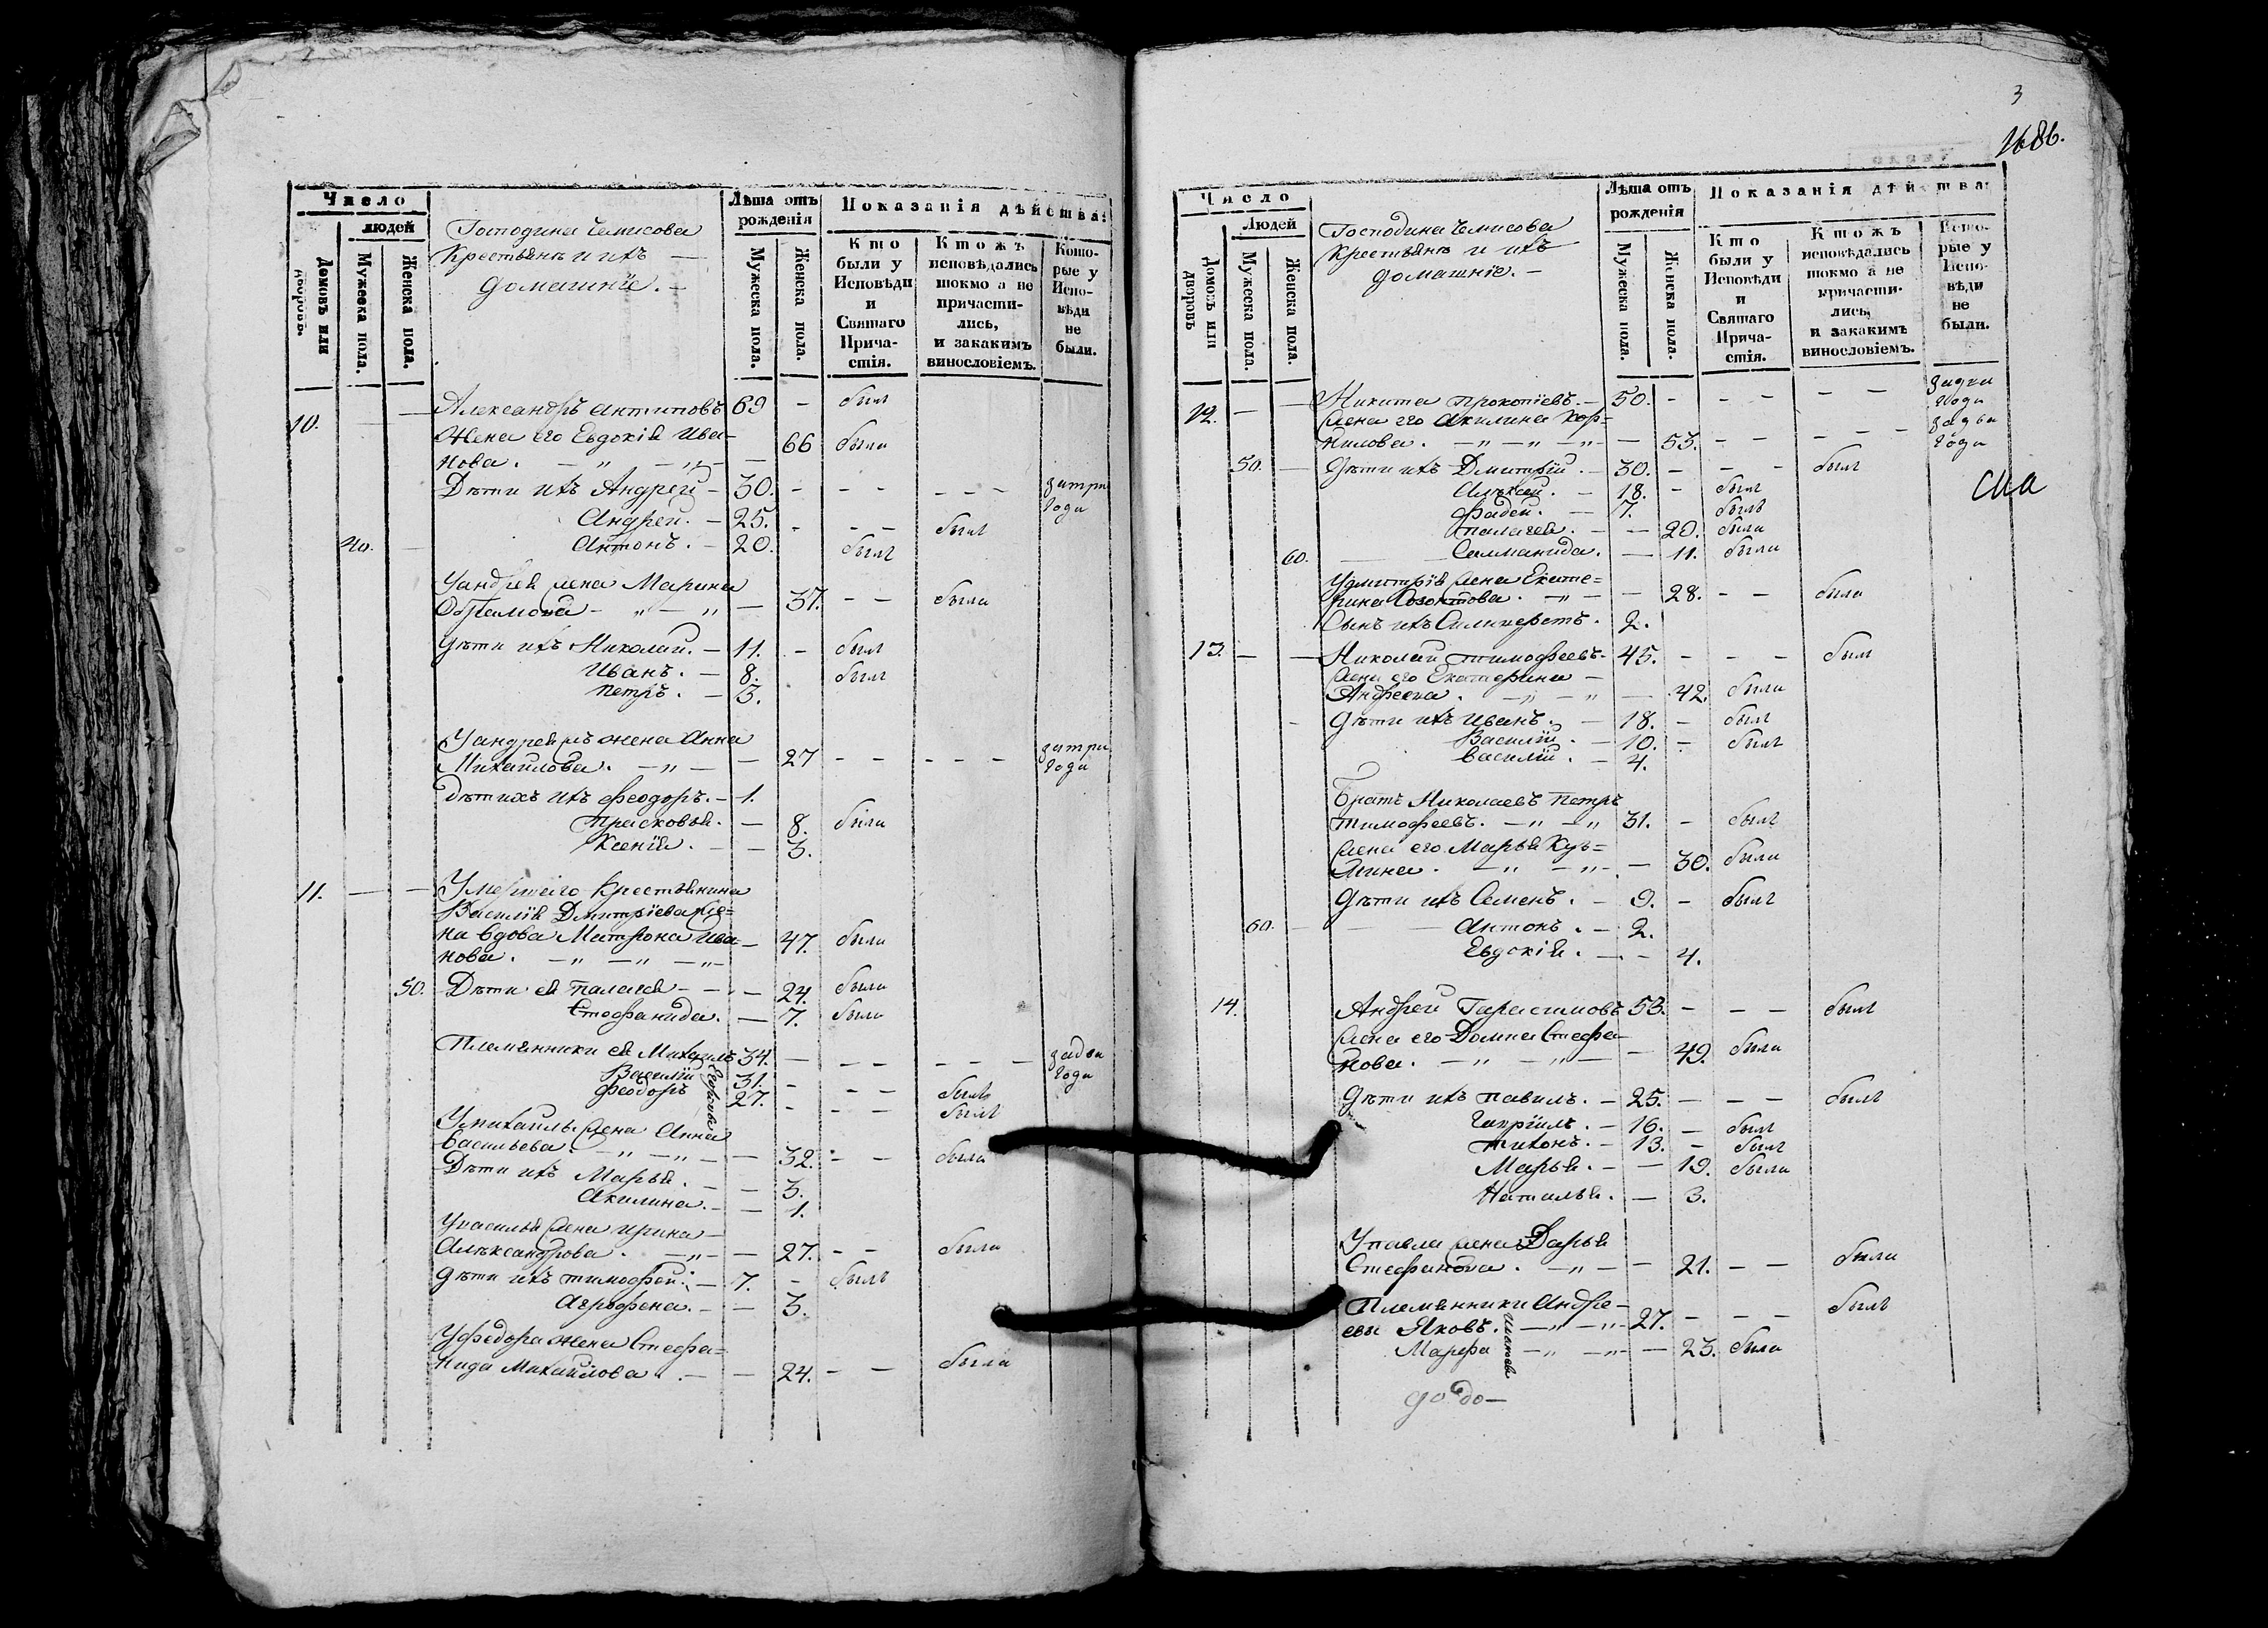 Число
людей
Домовъ или дворовъ.
Мужеска пола.
Женска пола.
Господина Чемисова
Крестьянъ и ихъ —
домашніе. —
Лѣта отъ рожденія
Мужеска пола.
Женска пола.
Показанія дѣйства:
Кто были у Исповѣди и Святаго Прича-стія.
Ктожъ исповѣдались токмо а не причасти-лись, и закакимъ винословіемъ.
Кото-рые у Испо-вѣди не были.
10. — — Александръ Антиповъ 69 — былъ
Жена его Евдокія Ива-
нова. — „ — „ — — 66 была
Дѣти ихъ Андрей — 30. - - - - - - затри года
Андрей. — 25. - - - былъ
40. — Антонъ. — 20. былъ
Уандрея жена Марина
— „ — „ — 37. - - была
Дѣти ихъ Николай. — 11. - былъ
Иванъ. — 8. былъ
Петръ. — 3.
Уандрея жена Анна
Михайлова. — „ — — 27 - - - - - затри года
дѣти ихъ Феодоръ. — 1.
Прасковья. — 8. была
Ксенія. — — 3.
11. — — Умершаго Крестьянина
Василія Дмитріева же-
на вдова Матрона Ива- — 47. была
нова. — „ — „ — „ —
50. Дѣти ея Палагея — - — 24. была
Стефанида. — 7. была
Племянники ея Михаилъ 34. — - - - - - задва года
Василій 31. - - - былъ
Феодоръ 27. - - - былъ
Умихаилы жена Анна
Васильева. — „ — „ — — 32. - - была
Дѣти ихъ Марья. — — 3.
Акилина. — — 1.
Увасилья жена Ирина —
Александрова. — „ — — 27. - - была
Дѣти ихъ Тимофей. — 7. - былъ
Агрофена. — — 3.
Уфедора жена Стефа=
нида Михайлова. — — 24. - - была
3
1686.
Число
Людей
Домовъ или дворовъ
Мужеска пола.
Женска пола.
Господина Чемисова
Крестьянъ и ихъ
домашніе. —
Лѣта отъ рожденія
Мужеска пола.
Женска пола.
Показанія дѣйства:
Кто были у Исповѣди и Святаго Прича-стія.
Ктожъ исповѣдались токмо а не причасти-лись, и закакимъ винословіемъ.
Кото-рые у Испо-вѣди не были.
12. — — Никита Прокопіевъ. — 50. - - - - - задва года
Жена его Акилина Кор=
нилова. — „ — „ — „ — — 53. - - - - - задва года
50. — Дѣти ихъ Дмитрій. — 30. - - - былъ
Алексей. — 18. - былъ
Фадей. — 7. былъ
Палагея. — — 20. была
60. — Саламанида. — 11. была
Удмитрія жена Екате=
рина Созонтова. — „ — — 28. - - была
Сынъ ихъ Силиверстъ. 2.
13. — — Николай Тимофеевъ. 45. - - - былъ
Жена его Екатерина —
Андреева. — „ — „ — 42. была
— Дѣти ихъ Иванъ. — 18. - былъ
Василій. — 10. - былъ
Василій. — 4.
Братъ Николаевъ Петръ
Тимофеевъ. — „ — „ 31. - былъ
Жена его Марья Кузь=
мина. — „ — „ — — 30. была
Дѣти ихъ Семенъ. — 9. - былъ
60. — Антонъ. — 2.
Евдокія. — - 4.
14. Андрей Гарасимовъ 53. - - - былъ
Жена его Домна Стефа-
нова. — „ — „ — — 49. была
Дѣти ихъ Павилъ. — 25. — - - былъ
Гавріилъ. — 16. - былъ
Тихонъ. — 13. - былъ
Марья. — — 19. была
Наталья. — 3.
Упавла жена Дарья
Стефанова. — „ — — 21. - - была
Племянники Андре-
евы Яковъ. — „ — „ — 27. - - - былъ
Марфа — „ — „ — — 23. была